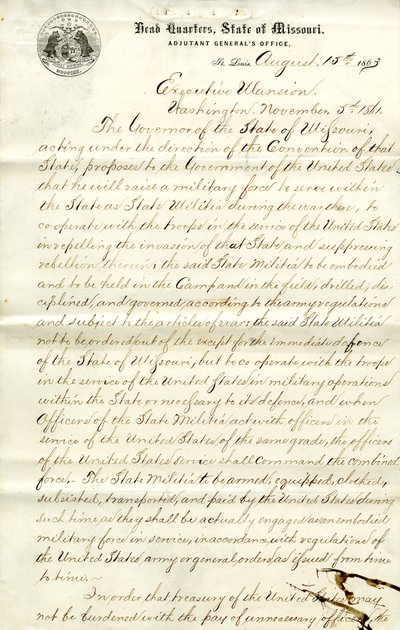 Head Quarters, State of Missouri.
ADJUTANT GENERAL'S OFFICE,
St. Louis, August 15th 1863
Executive Mansion.
Washington November 5th 1861.
The Governor of the State of Missouri,
acting under the direction of the Convention of that
State, proposes to the Government of the United States
that he will raise a military force to serve within
the State as State Militia during the war there, to
co-operate with the troops in the service of the United States
in repelling the invasion of that State and suppressing
rebellion therein; the said State Militia to be embodied
and to be held in the Camp and in the field, drilled, dis-
ciplined, and governed, according to the army regulations
and subject to the articles of war; the said State Militia
not to be ordered out of the except for the immediate defence
of the State of Missouri, but to co-operate with the troops
in the service of the United States in military operations
within the State or necessary to its defence, and when
Officers of the State Militia act with officers in the
service of the United States of the same grade, the officers
of the United States service shall command the combined
force,- The State Militia to be armed, equipped, clothed,
subsisted, transported, and paid by the United States during
such time, as they shall be actually engaged as an embodied
military force in service, in accordance with regulations of
the United States army or general orders as issued from time
to time. ~
In order that treasury of the United States may
not be burdened with the pay of unnecessary officers, the